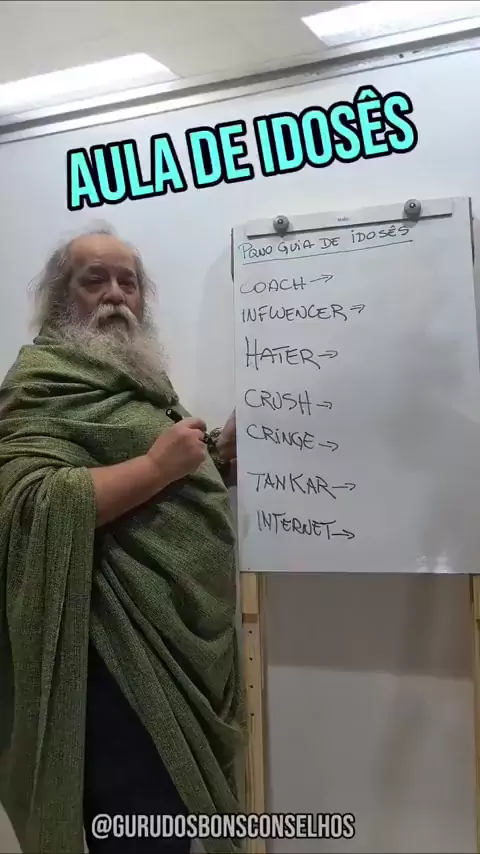 AULA DE IDOSÊS
PQNO GUIA DE IDOSÊS
COACH →
INFLUENCER →
HATER →
CRUSH →
CRINGE →
TANKAR →
INTERNET →
@GURUDOSBONSCONSELHOS